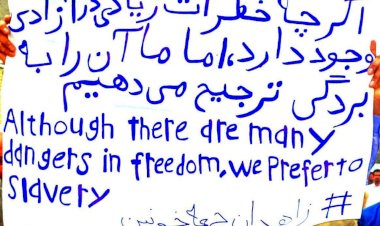 اگرچه خطرات زیادی در آزادی
وجود دارد، اما ما آن را به
بردگی ترجیح می دهیم
Although there are many
dangers in freedom, we Prefer to
Slavery
# زاهدان جمعه خونین